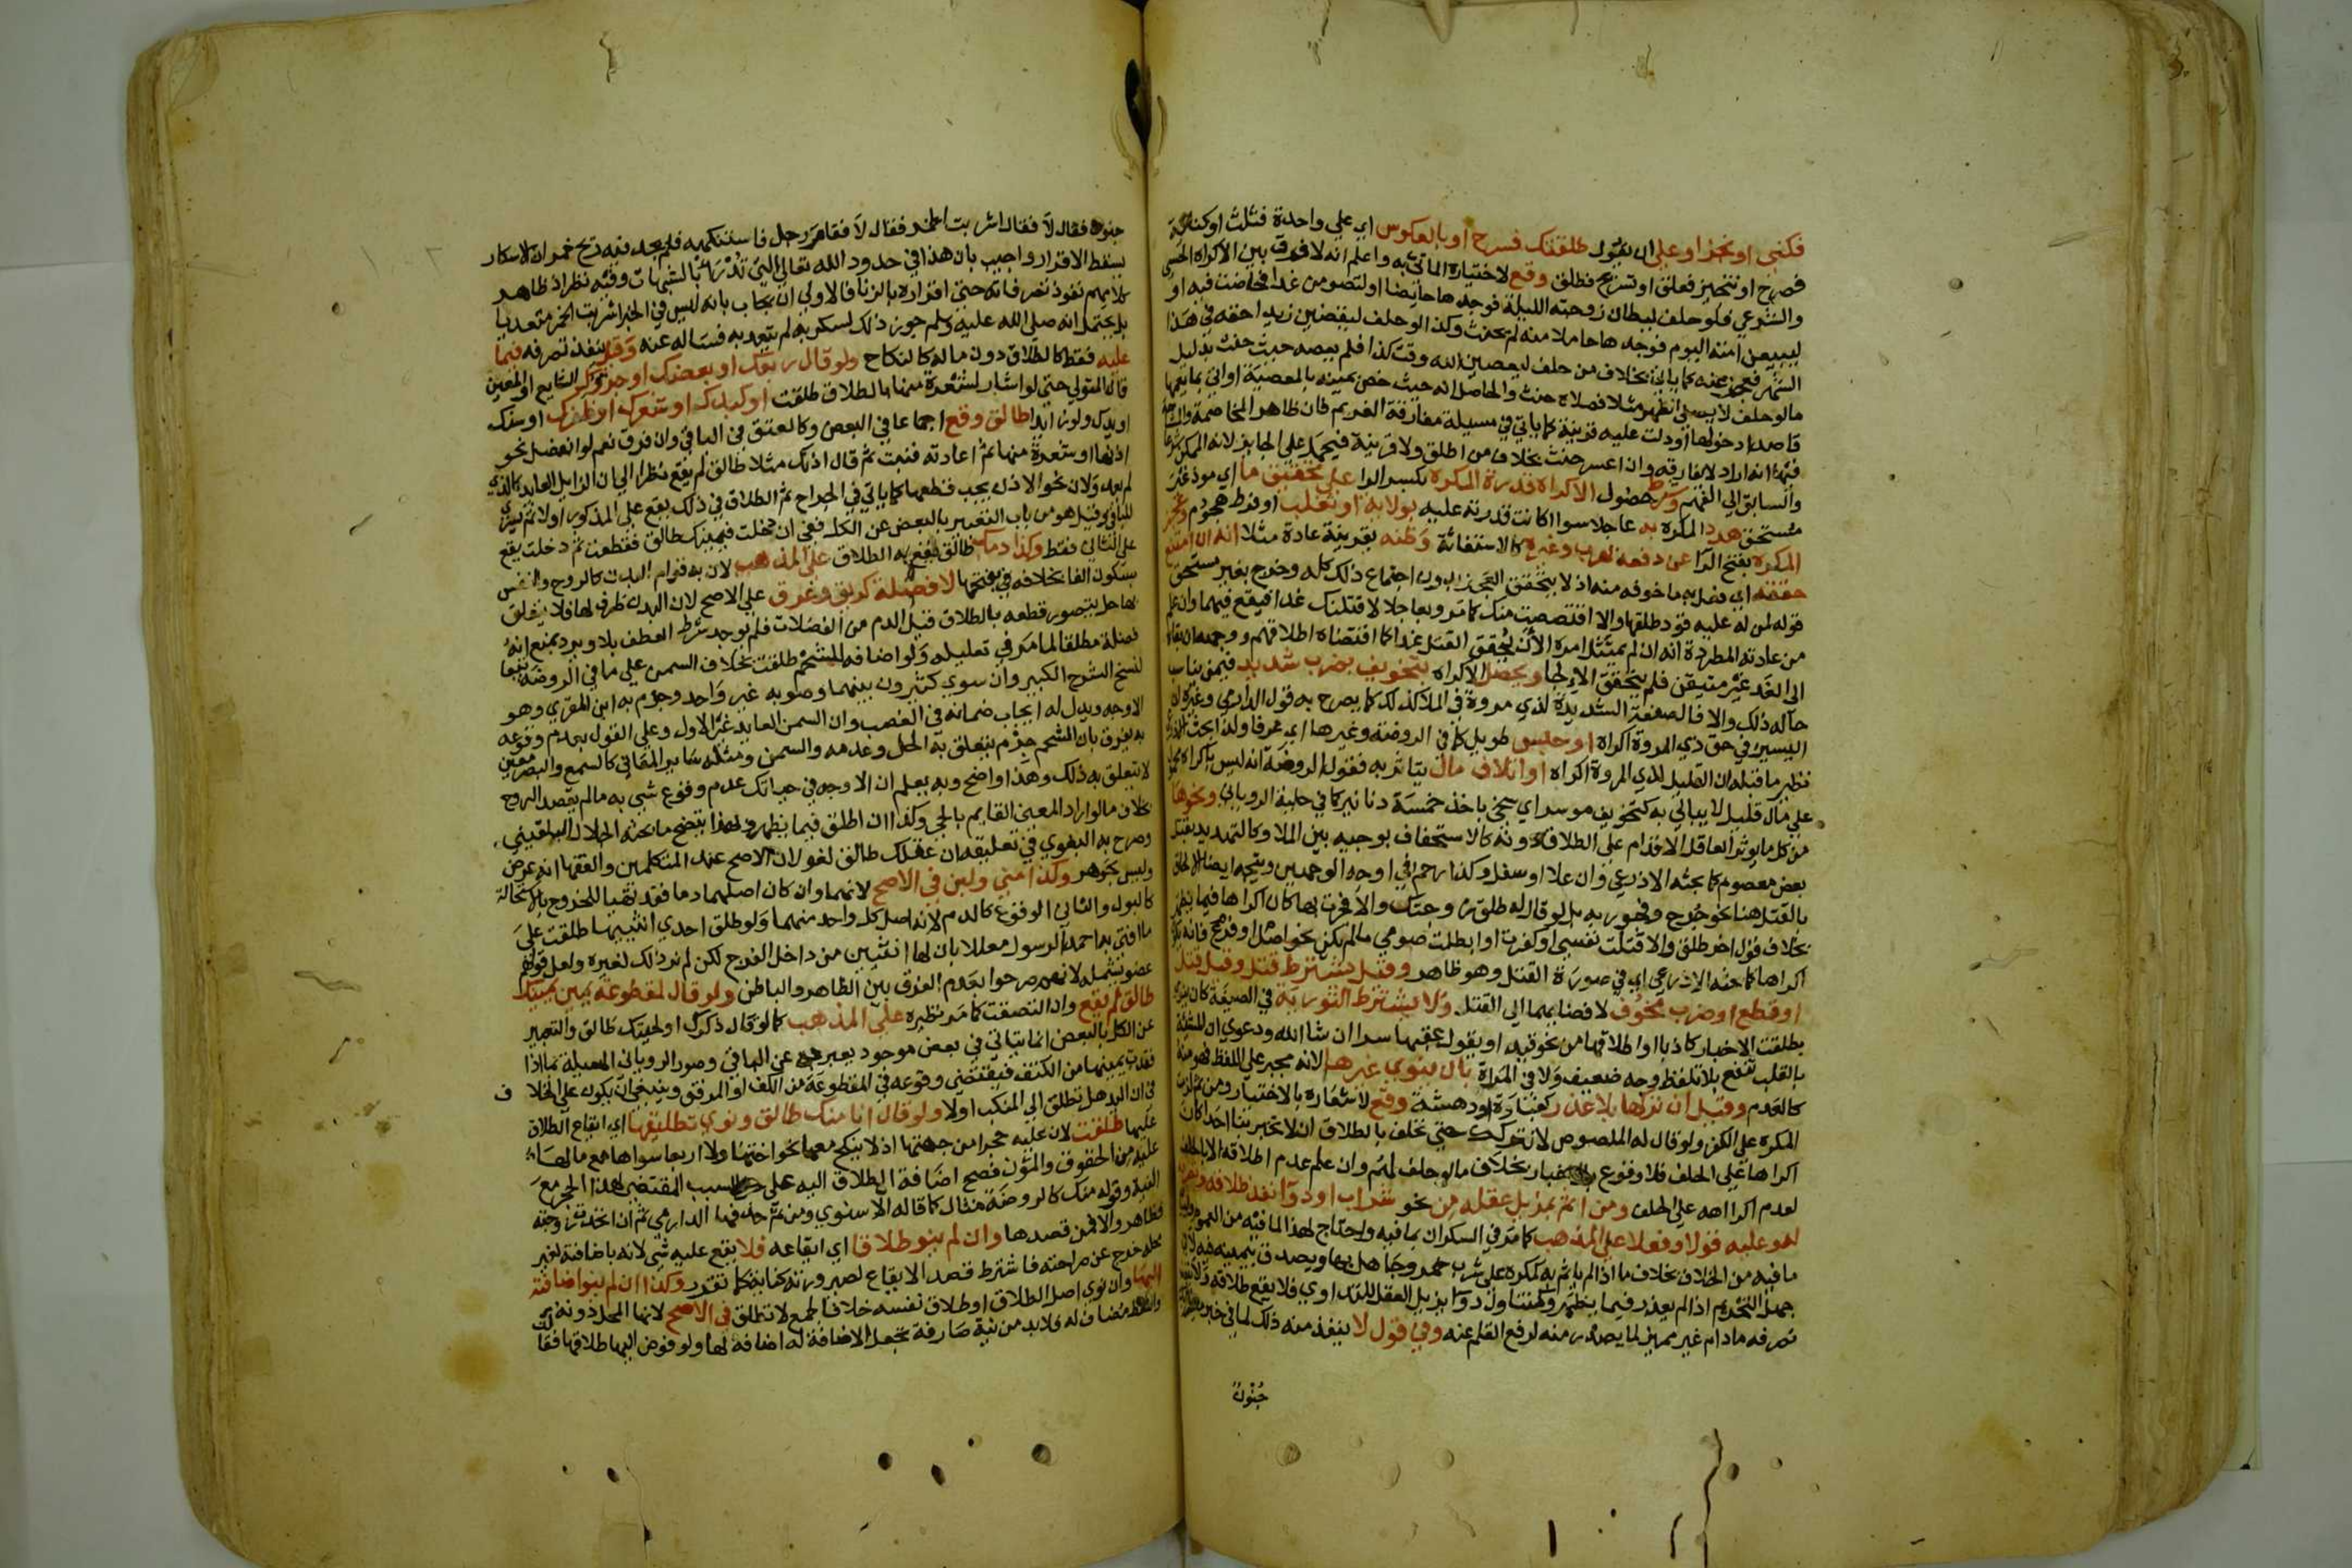 فكنى او نجز او على ان يقول طلقتك فسرح او بالعكوس اي على واحدة فثلث او كناية
فصرح او تنجيز فعلق او تسريح فطلق وقع لاختياره الماتي به واعلم انه لا فرق بين الاكراه الحسي
والشرعي فلو حلف ليطان زوجته الليلة فوجدها حايضا او لتصومن غدا فحاضت فيه او
ليبيعن امته اليوم فوجدها حاملا منه لم يحنث وكذا لو حلف ليقضين زيدا حقه في هذا
الشهر فعجز عنه كما ياتي بخلاف من حلف ليعصين الله وقت كذا فلم يعصه حيث حنث بدليل
ما لو حلف لا يصلي الظهر مثلا فصلاه حنث والحاصل انه حيث خص يمينه بالمعصية او اتى بما يعمها
قاصدا دخولها او دلت عليه قرينة كما ياتي في مسيلة مفارقة الغريم فان ظاهر المخاصمة
فيها انه اراد لا يفارقه وان اعسر حنث بخلاف من اطلق ولا قرينة فيحمل على الجايز لانه الممكن شرعا
والسابق الى الفهم وشرط حصول الاكراه قدرة المكره بكسر الرا على تحقيق ما اي موذ غير
مستحق هدد المكره به عاجلا سوا اكانت قدرته عليه بولاية او تغلب او فرط هجوم وعجز
المكره بفتح الرا عن دفعه لهرب وغيره كالاستغاثة وظنه بقرينة عادة مثلا انه ان امتنع
حققه اي فعل به ما خوفه منه اذ لا يتحقق العجز بدون اجتماع ذلك كله وخرج بغير مستحق
قوله لمن له عليه قود طلقها والا اقتصصت منك كما مر وبعاجلا لاقتلنك غدا فيقع فيهما وان علم
من عادته المطردة انه ان لم يمتثل امره الان تحقق القتل غدا كما اقتضاه اطلاقهم ووجهه ان بقاه
الى الغد غير متيقن فلم يتحقق الالجا ويحصل الاكراه بتخويف بضرب شديد فيمن يناسب
حاله ذلك والا فالصفعة الشديدة لذي مروة في الملا كذلك كما يصرح به قول الدارمي وغيره ان
اليسير في حق ذي المروة اكراه او حبس طويل كما في الروضة وغيرها اي عرفا ولذا بحث الاذرعي
نظير ما قبله ان القليل لذي المروة اكراه او اتلاف مال يتاثر به فقول الروضة انه ليس باكراه محمول
على مال قليل لا يبالي به كتخويف موسر اي سخي باخذ خمسة دنانير كما في حلية الروياني ونحوها
من كل ما يوثر العاقل الاقدام على الطلاق دونه كالاستخفاف بوجيه بين الملا وكالتهديد بقتل
بعض معصوم كما بحثه الاذرعي وان علا او سفل وكذا رحم في اوجه الوجهين ويتجه ايضا الالحاق
بالقتل هنا نحو جرح وفجور به بل لو قال له طلق زوجتك والا فجرت بها كان اكراها فيما يظهر
بخلاف قول اخر طلق والا قتلت نفسي او كفرت او ابطلت صومي ما لم يكن نحو اصل او فرع فانه يكون
اكراها كما بحثه الاذرعي اي في صورة القتل وهو ظاهر وقيل يشترط قتل وقيل قتل
او قطع او ضرب مخوف لافضايهما الى القتل ولا يشترط التورية في الصيغة كان ينوي
بطلقت الاخبار كاذبا او اطلاقها من نحو قيد او يقول عقبها سرا ان شا الله ودعوى ان المشيئة
بالقلب تنفع بلا تلفظ وجه ضعيف ولا في المراة بان ينوي غيرها لانه مجبر على اللفظ فهو منه
كالعدم وقيل ان تركها بلا عذر كغباوة او دهشة وقع لاشعاره بالاختيار ومن ثم لزمت
المكره على الكفر ولو قال له اللصوص لا نتركك حتى تحلف بالطلاق انك لا تخبر بنا احدا كان
اكراها على الحلف فلا وقوع بالاخبار بخلاف ما لو حلف لهم وان علم عدم اطلاقه الا بالحلف
لعدم اكراهه على الحلف ومن اثم بمزيل عقله من نحو شراب او دوا نفذ طلاقه وتصرفه
له وعليه قولا وفعلا على المذهب كما مر في السكران بما فيه واحتاج لهذا لما فيه من العموم
ما فيه من الخلاف بخلاف ما اذا لم ياثم به كمكره على شرب خمر وجاهل بها ويصدق بيمينه فيه لا في
جهل التحريم اذا لم يعذر فيما يظهر وكمتناول دوا يزيل العقل للتداوي فلا يقع طلاقه ولا ينفذ
تصرفه ما دام غير مميز لما يصدر منه لرفع القلم عنه وفي قول لا ينفذ منه ذلك لما في خبر ماعز
جنون
جنون فقال لا فقال اشربت الخمر فقال لا فقام رجل فاستنكهه فلم يجد فيه ريح خمر ان الاسكار
يسقط الاقرار واجيب بان هذا في حدود الله تعالى التي تدرا بالشبهات وفيه نظر اذ ظاهر
كلامهم نفوذ تصرفاته حتى اقراره بالزنا فالاولى ان يجاب بانه ليس في الخبر اشربت الخمر متعديا
بل يحتمل انه صلى الله عليه وسلم جوز ذلك لسكر به لم يتعد به فساله عنه وقيل ينفذ تصرفه فيما
عليه فقط كالطلاق دون ماله كالنكاح ولو قال ربعك او بعضك او جزوك الشايع او المعين
قال المتولي حتى لو اشار لشعرة منها بالطلاق طلقت او كبدك او شعرك او ظفرك او سنك
او يدك ولو زايدا طالق وقع اجماعا في البعض وكالعتق في الباقي وان فرق نعم لو انفصل نحو
اذنها او شعرة منها ثم اعادته فنبت ثم قال اذنك مثلا طالق لم يقع نظرا الى ان الزايل العايد كالذي
لم يعد ولان نحو الاذن يجب قطعها كما ياتي في الجراح ثم الطلاق في ذلك يقع على المذكور اولا ثم يسري
للباقي وقيل هو من باب التعبير بالبعض عن الكل ففي ان دخلت فيمينك طالق فقطعت ثم دخلت يقع
على الثاني فقط وكذا دمك طالق يقع به الطلاق على المذهب لان به قوام البدن كالروح والنفس
بسكون الفا بخلافه في بفتحها لا فضلة كريق وعرق على الاصح لان البدن ظرف لها فلا يتعلق
بها حل يتصور قطعه بالطلاق قيل الدم من الفضلات فلم يوجد شرط العطف بلا ويرد بمنع انه
فضلة مطلقا لما مر في تعليله ولو اضافه للشحم طلقت بخلاف السمن على ما في الروضة تبعا
لنسخ الشرح الكبير وان سوى كثيرون بينهما وصوبه غير واحد وجزم به ابن المقري وهو
الاوجه ويدل له ايجاب ضمانه في الغصب وان السمن العايد غير الاول وعلى القول بعدم وقوعه
به يفرق بان الشحم جرم يتعلق به الحل وعدمه والسمن ومثله ساير المعاني كالسمع والبصر معنى
لا يتعلق به ذلك وهذا واضح وبه يعلم ان الاوجه في حياتك عدم وقوع شي به ما لم يقصد الروح
بخلاف ما لو اراد المعنى القايم بالحي وكذا ان اطلق فيما يظهر وبهذا يتضح ما بحثه الجلال البلقيني
وصرح به البغوي في تعليقه ان عقلك طالق لغو لان الاصح عند المتكلمين والفقها انه عرض
وليس بجوهر وكذا مني ولبن في الاصح لانهما وان كان اصلهما دما فقد تهيا للخروج بالاستحالة
كالبول والثاني الوقوع كالدم لانه اصل كل واحد منهما ولو طلق احدى انثييها طلقت على
ما افتى به احمد الرسول معللا بان لها انثيين من داخل الفرج لكن لم نر ذلك لغيره ولعل قولهم
عضو يشمله لانهم صرحوا بعدم الفرق بين الظاهر والباطن ولو قال لمقطوعة يمين يمينك
طالق لم يقع وان التصقت كما مر نظيره على المذهب كما لو قال ذكرك او لحيتك طالق والتعبير
عن الكل بالبعض انما يتاتى في بعض موجود يعبر به عن الباقي وصور الروياني المسيلة بما اذا
فقدت يمينها من الكتف فيقتضي وقوعه في المقطوعة من الكف او المرفق وينبغي ان يكون على الخلا ف
في ان اليد هل تطلق الى المنكب او لا ولو قال انا منك طالق ونوى تطليقها اي ايقاع الطلاق
عليها طلقت لان عليه حجرا من جهتها اذ لا ينكح معها نحو اختها ولا اربعا سواها مع ما لها
عليه من الحقوق والمؤن فصح اضافة الطلاق اليه على السبب المقتضي لهذا الحجر مع
النية وقوله منك كالروضة مثال كما قاله الاسنوي ومن ثم حذفها الدارمي ثم ان اتحدت زوجته
فظاهر والا فمن قصدها وان لم ينو طلاقا اي ايقاعه فلا يقع عليه شي لانه باضافته لغير
محله خرج عن صراحته فاشترط قصد الايقاع لصيرورته كناية كما تقرر وكذا ان لم ينو اضافته
اليها وان نوى اصل الطلاق او طلاق نفسه خلافا لجمع لا تطلق في الاصح لانها المحل دونه
واللفظ مضاف له فلا بد من نية صارفة تجعل الاضافة له اضافة لها ولو فوض اليها طلاقها فقا لت